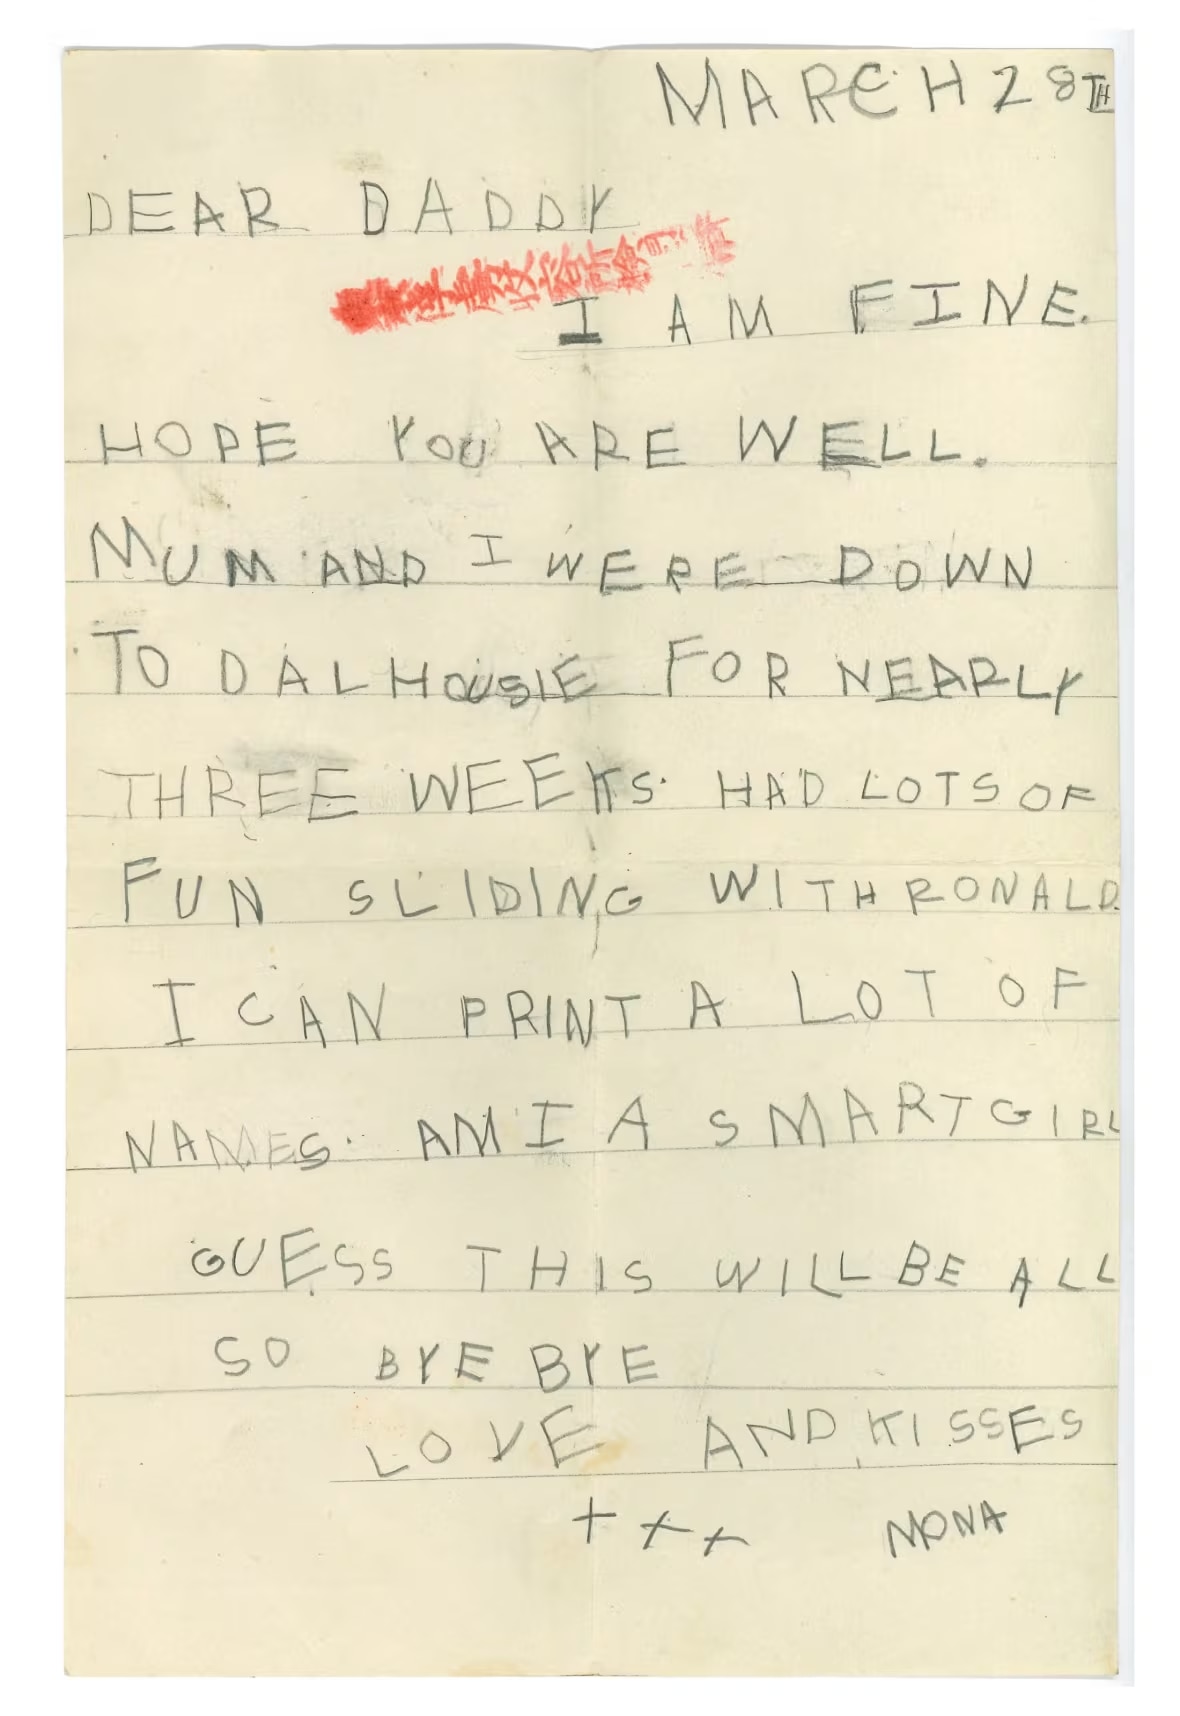 MARCH 28TH
DEAR DADDY
I AM FINE.
HOPE YOU ARE WELL.
MUM AND I WERE DOWN
TO DALHOUSIE FOR NEARLY
THREE WEEKS. HAD LOTS OF
FUN SLIDING WITH RONALD.
I CAN PRINT A LOT OF
NAMES. AM I A SMART GIRL
GUESS THIS WILL BE ALL
SO BYE BYE
LOVE AND KISSES
+ + + MONA